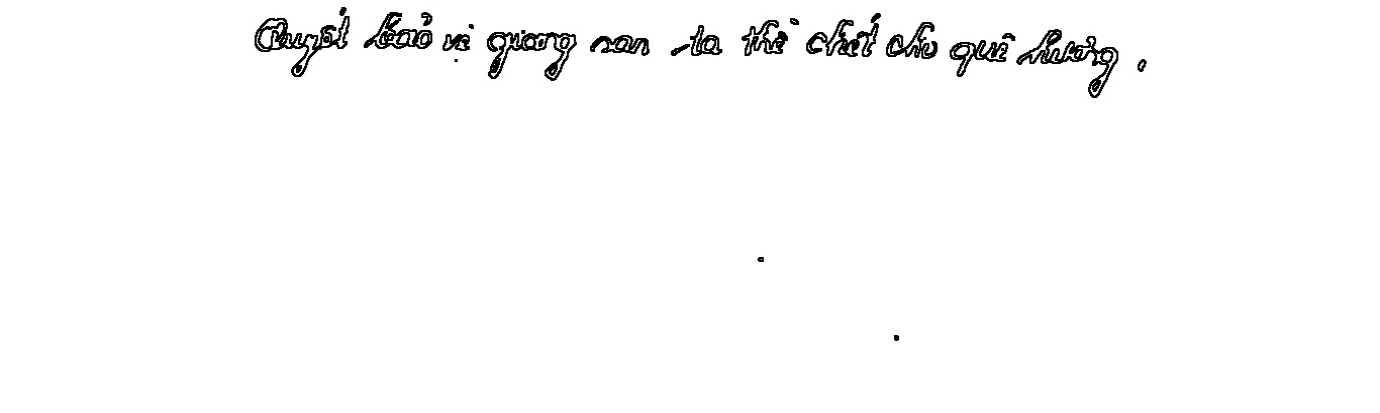 Quyết bảo vệ giang san ta thề chết cho quê hương.